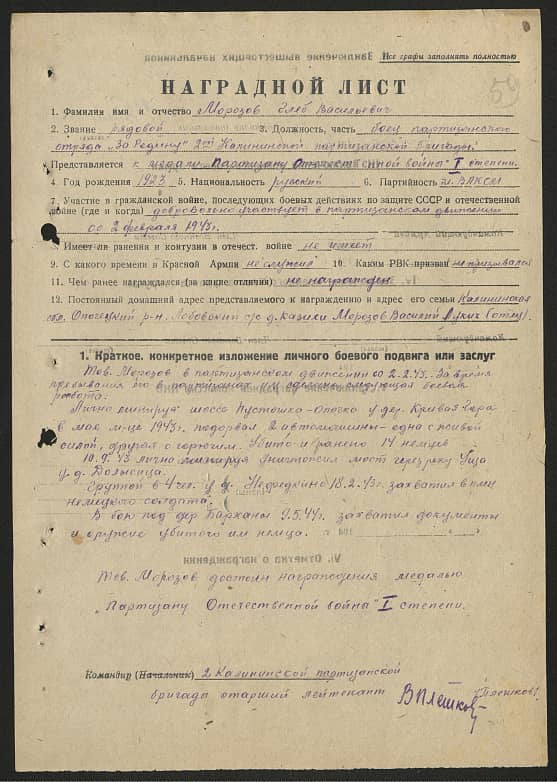 Все графы заполнять полностью
54
НАГРАДНОЙ ЛИСТ
1. Фамилия имя и отчество Морозов Глеб Васильевич
2. Звание рядовой 3. Должность, часть боец партизанского
отряда „За Родину" 2ой Калининской партизанской бригады.
Представляется к медали „Партизану Отечественной войны" I степени.
4. Год рождения 1923 5. Национальность русский 6. Партийность чл. ВЛКСМ
7. Участие в гражданской войне, последующих боевых действиях по защите СССР и отечественной
войне (где и когда) добровольно участвует в партизанском движении
со 2 февраля 1943г.
8. Имеет ли ранения и контузии в отечест. войне не имеет
9. С какого времени в Красной Армии не служил 10. Каким РВК призван не призывался
11. Чем ранее награждался (за какие отличия) не награжден
12. Постоянный домашний адрес представляемого к награждению и адрес его семьи Калининская
обл. Опочецкий р-н. Лобовский с/с д. Казихи Морозов Василий Лукич (отец).
1. Краткое, конкретное изложение личного боевого подвига или заслуг
Тов. Морозов в партизанском движении со 2.2.43г. За время
пребывания его в партизанах им сделано следующая боевая
работа:
Лично минируя шоссе Пустошка-Опочка у дер. Кривая Гора
в мае м-це 1943г. подорвал 2 автомашины - одна с живой
силой, другая с горючим. Убито и ранено 14 немцев
10.9.43 лично минируя уничтожил мост через реку Уща
у д.
Группой в 4 чел. у д. 18.2.43г. захватил в плен
немецкого солдата.
В бою под дер Барханы 9.5.44г. захватил документы
и оружие убитого им немца.
Тов. Морозов достоин награждения медалью
„Партизану Отечественной войны" I степени.
Командир (Начальник) 2 Калининской партизанской
бригады старший лейтенант ВПлешков /Плешков/